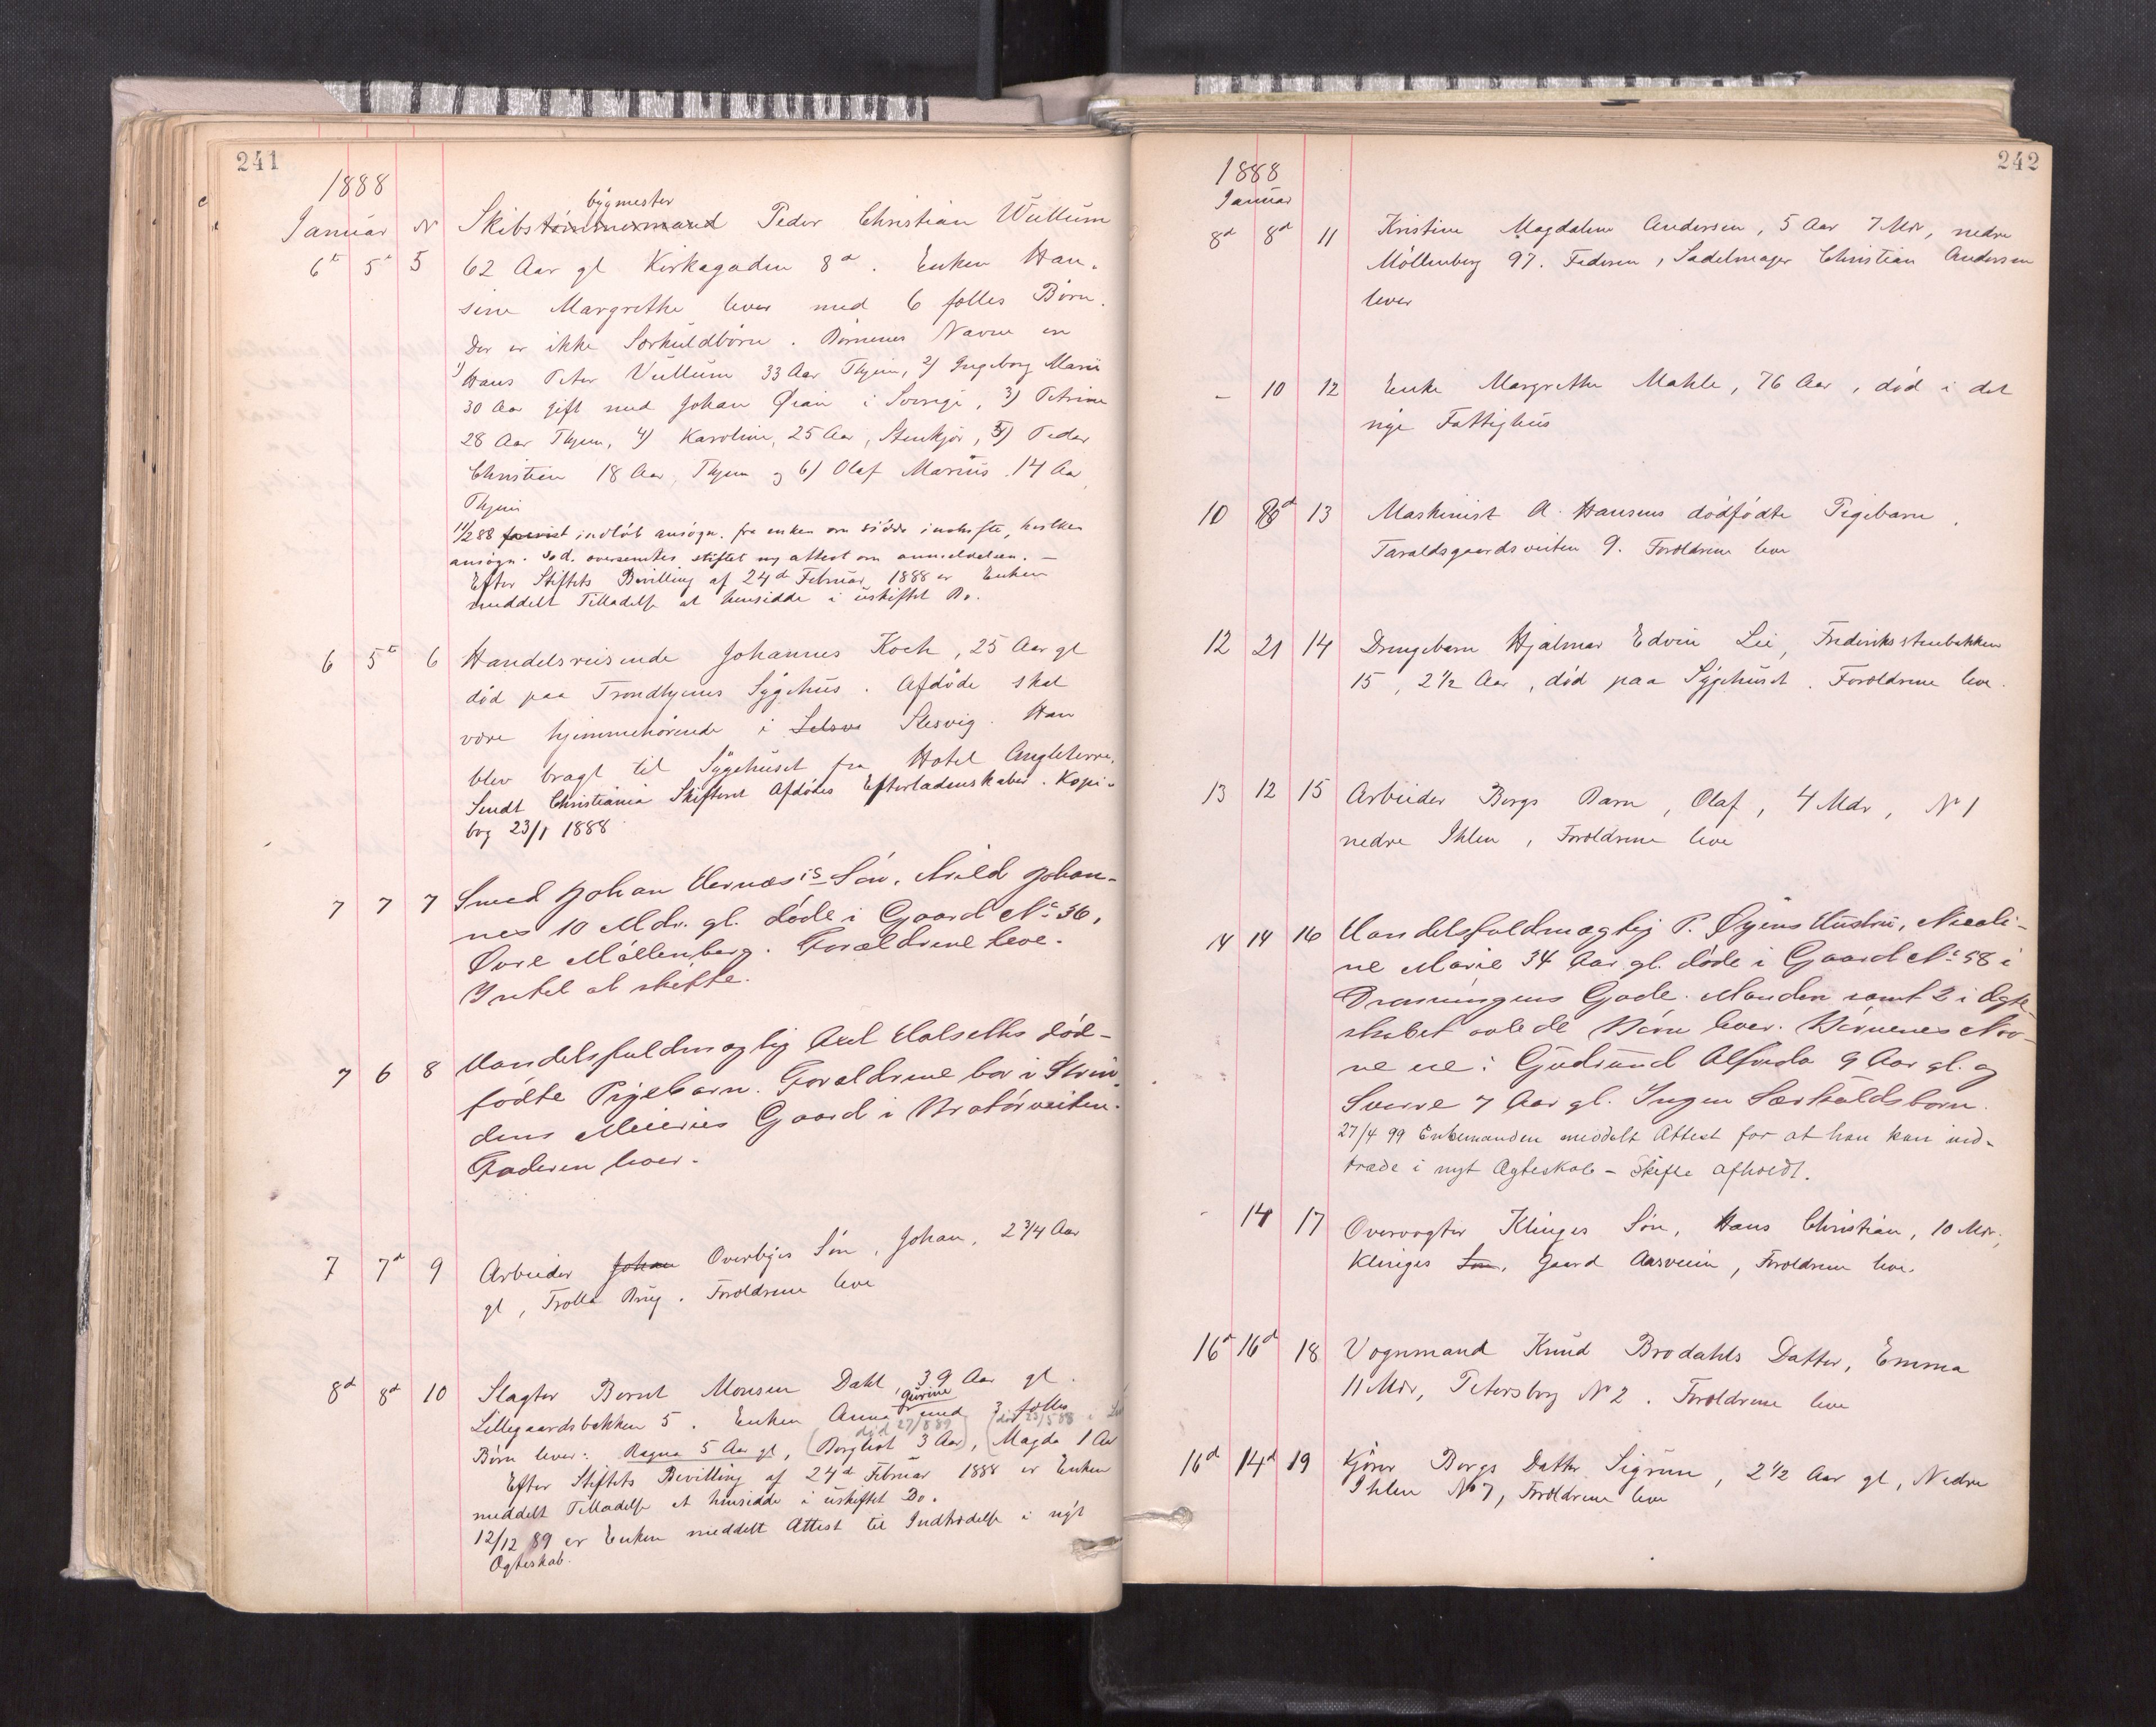 241
1888
bygmester
Januar N Skibstømmermand Peder Christian Wullum
6t 5t 5 62 Aar gl Kirkegaden 8a. Enken Han-
sine Margrethe lever med 6 fælles Børn.
Der er ikke Særkuldbørn. Børnenes Navne er
1) Hans Peter Wullum 33 Aar Thjem, 2) Ingeborg Marie
30 Aar gift med Johan Øian i Sverige, 3) Petrine
28 Aar Thjem, 4) Karoline, 25 Aar, Stenkjær, 5) Peder
Christian 18 Aar, Thjem og 6) Olaf Marius 14 Aar,
Thjem
11/2 88 indløb ansøgn. fra enken om uskifte, hvilken
ansøgn. s. d. oversendtes stiftet og attest om anmeldelsen. –
Efter Stiftets Bevilling af 24d Februar 1888 er Enken
meddelt Tilladelse at hensidde i uskiftet Bo.
6 5t 6 Handelsreisende Johannes Koch, 25 Aar gl
død paa Trondhjems Sygehus. Afdøde skal
være hjemmehørende i Slesvig. Han
blev bragt til Sygehuset fra Hotel Angleterre.
Sendt Christiania Skifteret Afdødes Efterladenskaber. Kopi-
bog 23/1 1888
7 7 7 Smed Johan Hernæs's Søn, Arild Johan-
nes 10 Mdr. gl. døde i Gaard No 36,
Øvre Møllenberg. Forældrene leve.
Intet at skifte.
7 6 8 Handelsfuldmægtig Axel Halseths død-
fødte Pigebarn. Forældrene bor i Strin-
dens Meieries Gaard i Bratørveiten.
Faderen lever.
7 7d 9 Arbeider Johan Overbyes Søn, Johan, 2 3/4 Aar
gl, Trolla Brug. Forældrene leve
8d 8d 10 Slagter Bernt Monsen Dahl, 39 Aar gl.
Gurine
Lillegaardsbakken 5. Enken Anna med 3 fælles
død 27/8 89 død 23/5 88
Børn lever: Ragna 5 Aar gl, (Borghild 3 Aar), (Magda 1 Aar
Efter Stiftets Bevilling af 24d Februar 1888 er Enken
meddelt Tilladelse at hensidde i uskiftet Bo.
12/12 89 er Enken meddelt Attest til Indtrædelse i nyt
Ægteskab.
242
1888
Januar
8d 8d 11 Kristine Magdalene Andersen, 5 Aar 7 Mdr, nedre
Møllenberg 97. Faderen, Sadelmager Christian Andersen
lever
– 10 12 Enke Margrethe Mahle, 76 Aar, død i det
nye Fattighus
10 8d 13 Maskinist A. Hansens dødfødte Pigebarn.
Taraldsgaardsveiten 9. Forældrene leve
12 21 14 Drengebarn Hjalmar Edvin Lie, Frederiksstenbakken
15, 2 1/2 Aar, død paa Sygehuset. Forældrene leve.
13 12 15 Arbeider Bergs Barn, Olaf, 4 Mdr, No 1
nedre Ihlen, Forældrene leve
14 14 16 Handelsfuldmægtig P. Øyens Hustru, Nicoli-
ne Marie 34 Aar gl. døde i Gaard No 58 i
Dronningens Gade. Manden samt 2 i Ægte-
skabet avlede Børn lever. Børnenes Nav-
ne ere: Gudrund Alfrida 9 Aar gl. og
Sverre 7 Aar gl. Ingen Særkuldsbørn.
27/4 99 Enkemanden meddelt Attest for at han kan ind-
træde i nyt Ægteskab – Skifte afholdt.
- 14 17 Overvogter Klinges Søn, Hans Christian, 10 Mdr.,
Klinges Søn, Gaard Aasveien, Forældrene leve.
16d 16d 18 Vognmand Knud Brodahls Datter, Emma
11 Mdr, Petersborg No 2. Forældrene leve
16d 14d 19 Kjører Bergs Datter Sigrun, 2 1/2 Aar gl, Nedre
Ihlen No 7, Forældrene leve